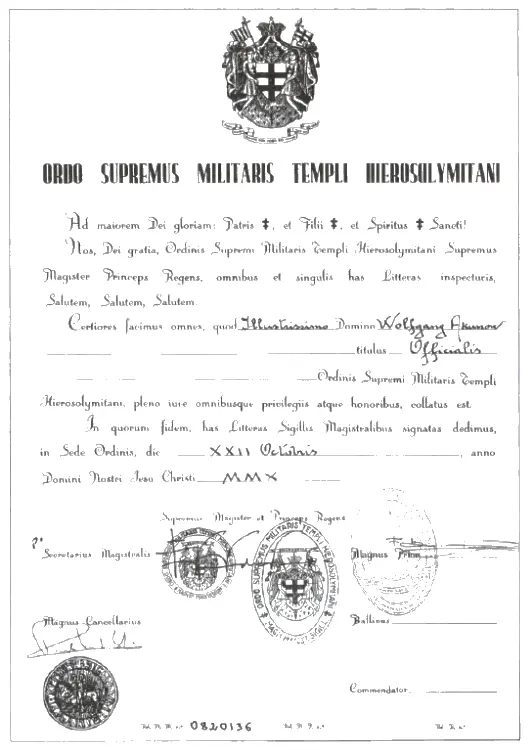 ORDO SUPREMUS MILITARIS TEMPLI HIEROSOLYMITANI
Ad maiorem Dei gloriam: Patris ‡, et Filii ‡, et Spiritus ‡ Sancti!
Nos, Dei gratia, Ordinis Supremi Militaris Templi Hierosolymitani Supremus
Magister Princeps Regens, omnibus et singulis has Litteras inspecturis,
Salutem, Salutem, Salutem.
Certiores facimus omnes, quod Illustrissimo Domino Wolfgang Akunow
titulus Officialis
Ordinis Supremi Militaris Templi
Hierosolymitani, pleno iure omnibusque privilegiis atque honoribus, collatus est.
In quorum fidem, has Litteras Sigillis Magistralibus signatas dedimus,
in Sede Ordinis, die XXII Octobris, anno
Domini Nostri Jesu Christi MMX
Supremus Magister et Princeps Regens
Secretarius Magistralis
Magnus
ORDO SUPREMUS MILITARIS TEMPLI HIEROSOLYMITANI
Magnus Cancellarius
Ballivus
Commendator
0820136